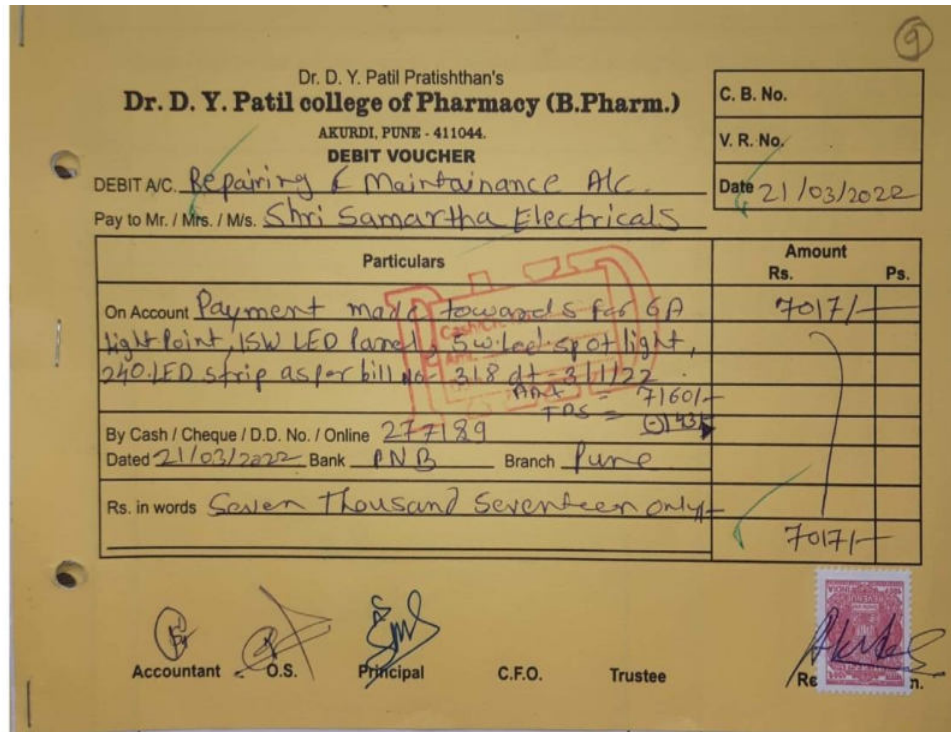 9
Dr. D. Y. Patil Pratishthan's
Dr. D. Y. Patil college of Pharmacy (B.Pharm.)
AKURDI, PUNE - 411044.
DEBIT VOUCHER
C. B. No.
V. R. No.
Date 21/03/2022
DEBIT A/C. Repairing & Maintainance A/c.
Pay to Mr. / Mrs. / M/s. Shri Samartha Electricals
Particulars Amount
Rs. Ps.
On Account Payment made towards for 6A 7017/-
light Point, 15W LED Panel, 5w.led spot light,
240.LED strip as per bill no- 318 dt- 3/1/22
= 7160/-
TDS = (-)143/-
By Cash / Cheque / D.D. No. / Online 277189
Dated 21/03/2022 Bank PNB Branch Pune
Rs. in words Seven Thousand Seventeen only/-
7017/-
Accountant O.S. Principal C.F.O. Trustee Re n.